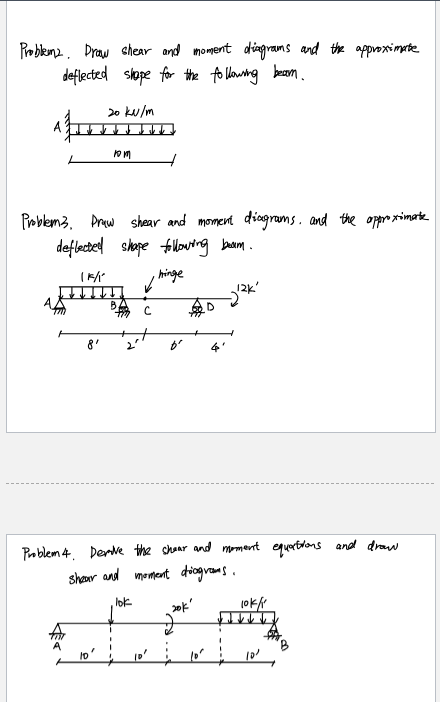 Problem2. Draw shear and moment diagrams and the approximate
deflected shape for the following beam.
20 kN/m
A
10m
Problem3. Draw shear and moment diagrams. and the approximate
deflected shape following beam.
1 k/1'
hinge
12k'
A
B
C
D
8'
2'
6'
4'
Problem 4. Derive the shear and moment equations and draw
shear and moment diagrams.
10k
20k'
10k/1'
A
B
10'
10'
10'
10'